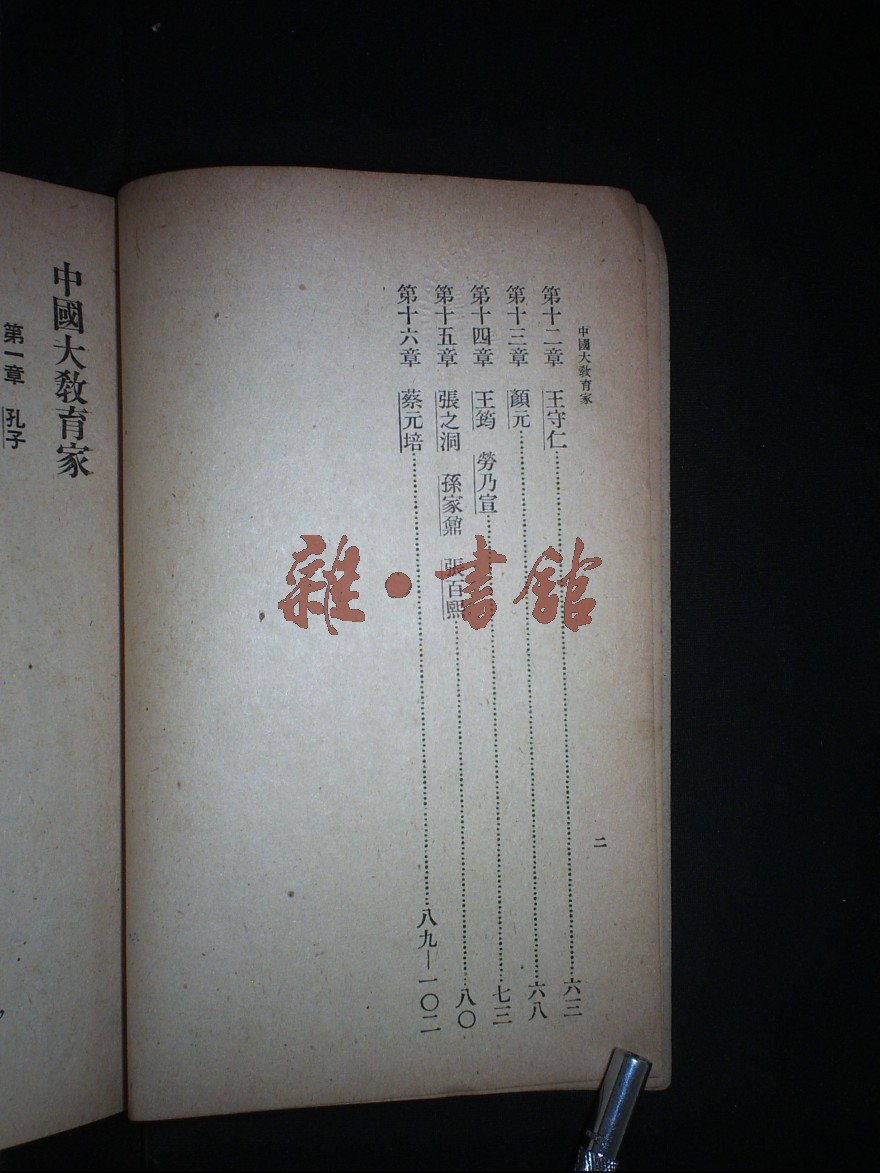 中國大教育家
二
第十二章　王守仁……六三
第十三章　顏元……六八
第十四章　王筠　勞乃宣……七三
第十五章　張之洞　孫家鼐　張百熙……八〇
第十六章　蔡元培……八九—一〇二
中國大教育家
第一章　孔子
雜·書館